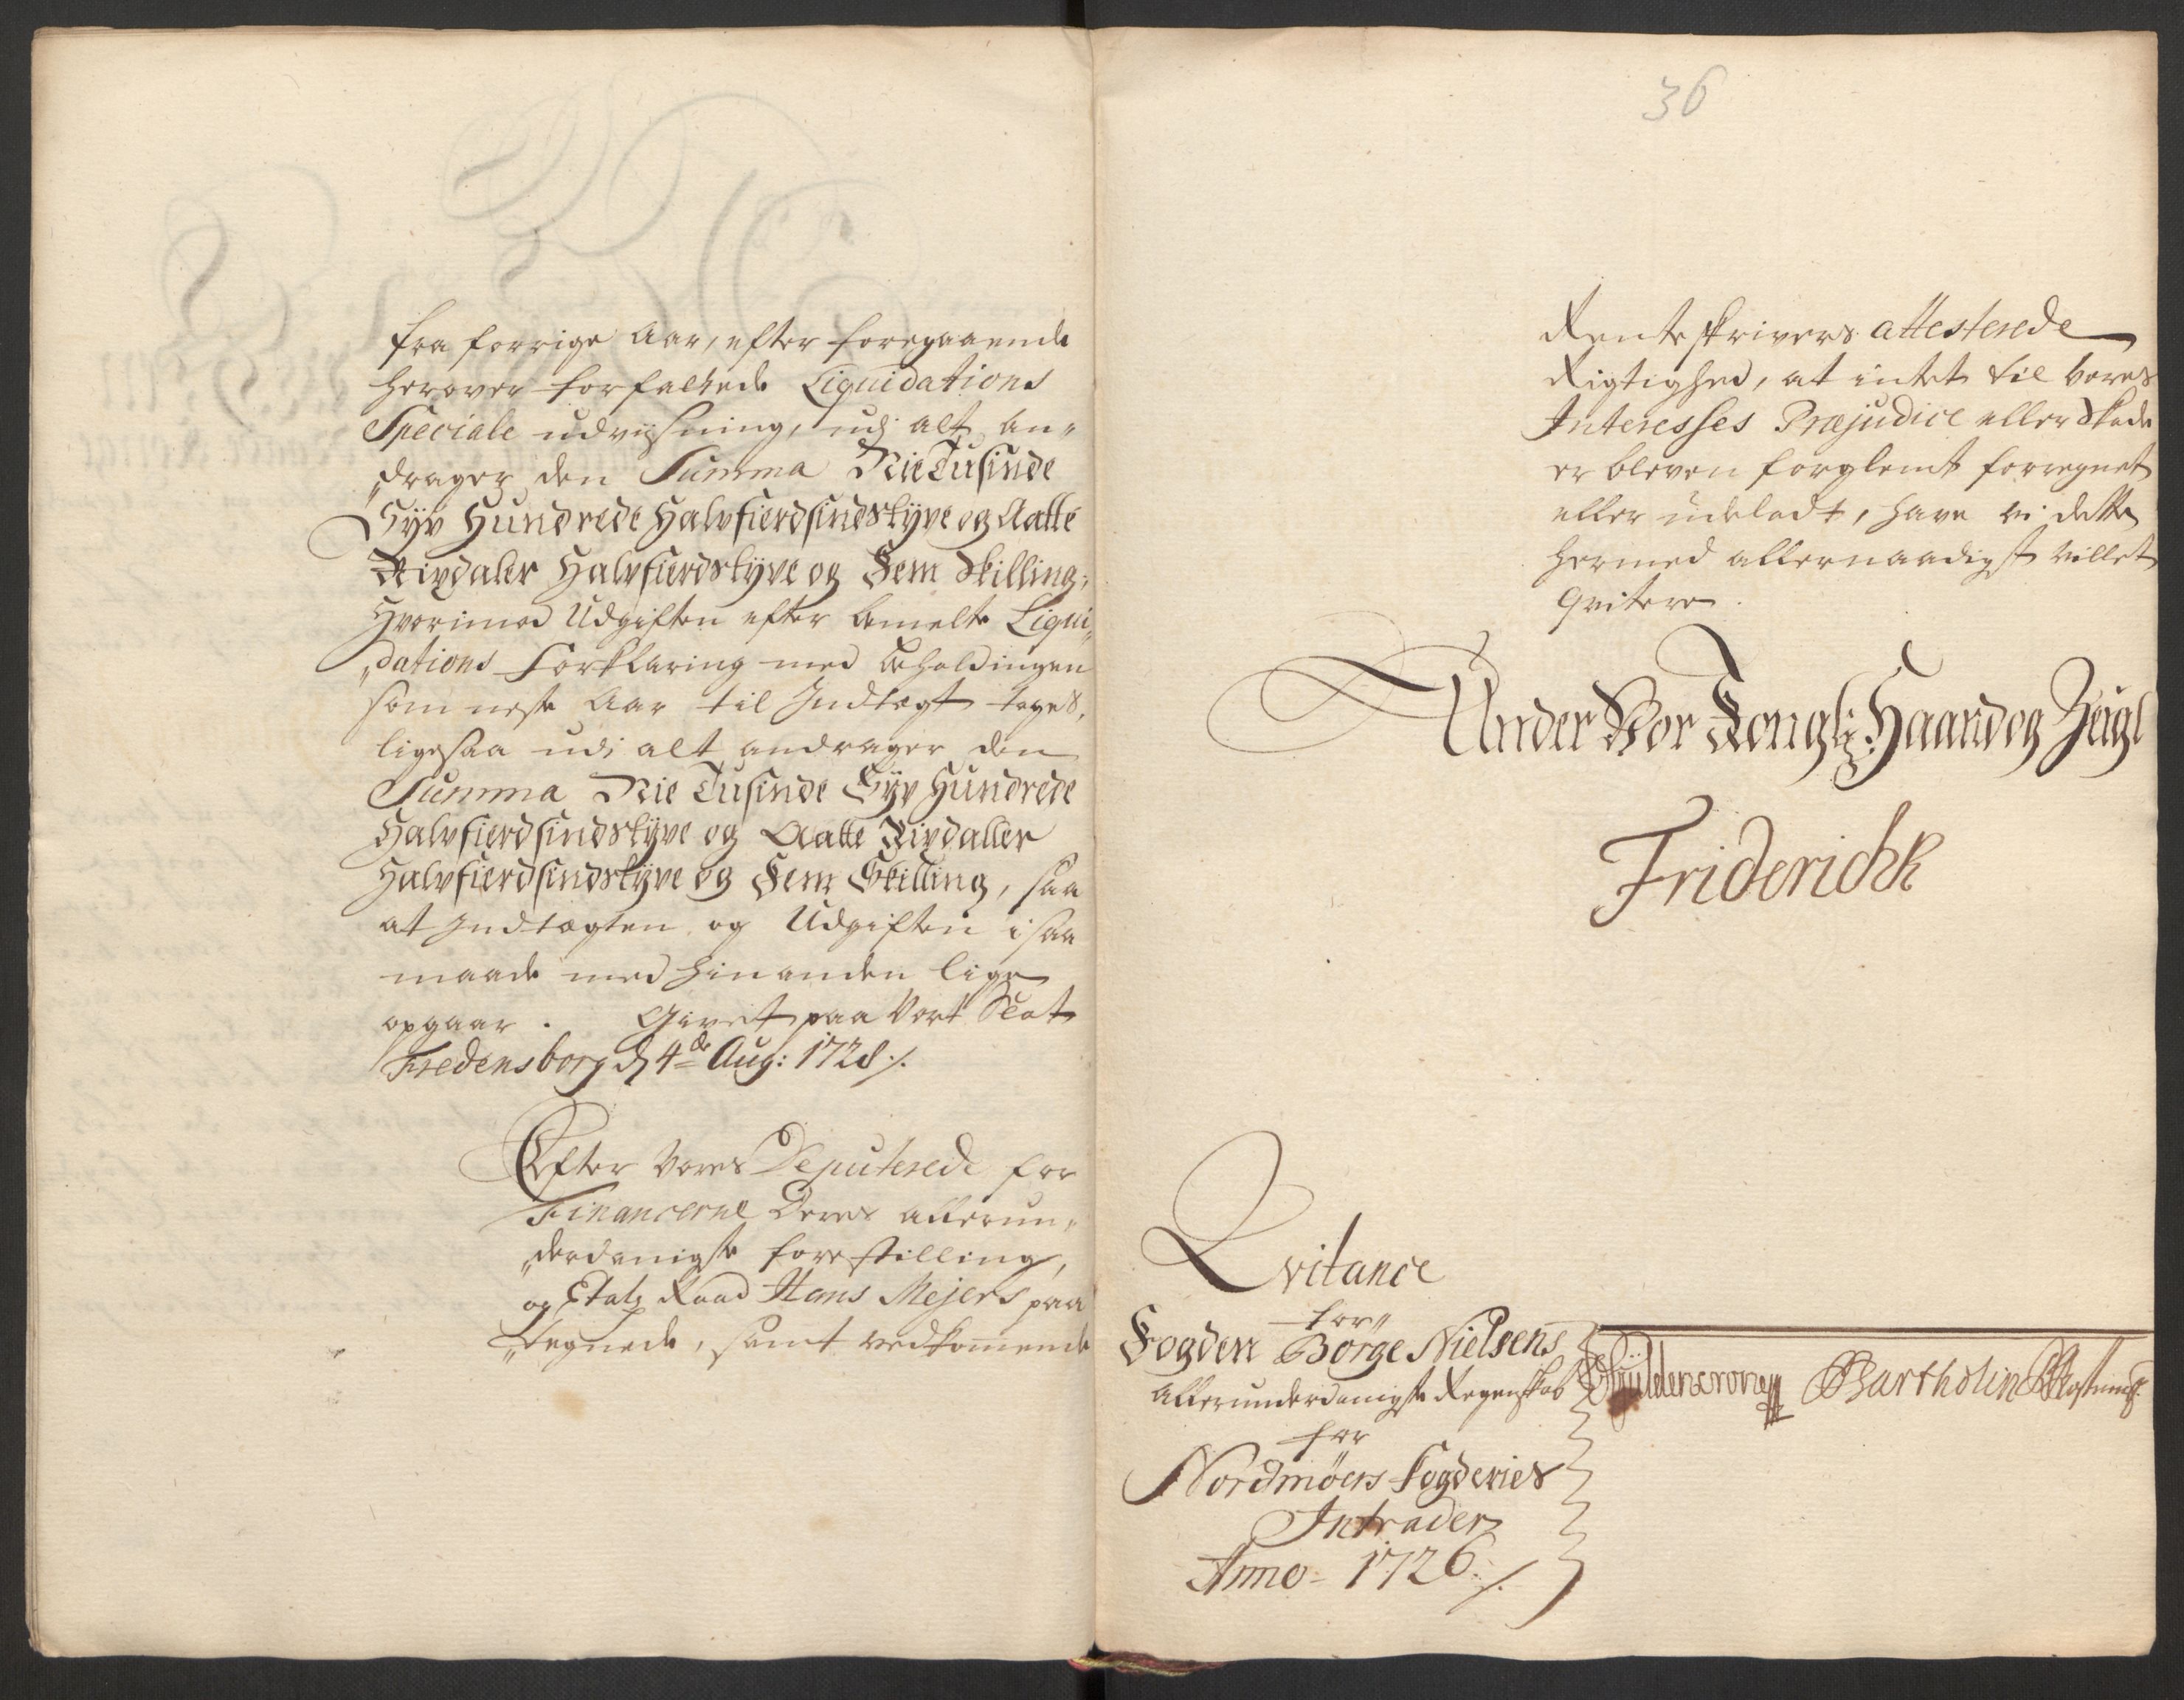 fra forrige Aar, efter foregaaende
herover forfattede Liquidations
Speciale udviisning, udj alt an„
„drager den Summa Nie Tusinde
Syv Hundrede Halvfierdsindstyve og Aatte
Rixdaler Halvfierdstyve og Fem Skilling;
Hvorimod Udgiften efter bemelte Liqui„
„dations Forklaring med Beholdingen
som neste Aar til Indtægt tages,
ligesaa udi alt andrager den
Summa Nie Tusinde Syv Hundrede
Halvfierdsindstyve og Aatte Rixdaller
Halvfierdsindstyve og Fem Skilling, saa
at Indtægten og Udgiften i saa
maade med hinanden lige
opgaar. Givet paa Vort Slot
Fredensborg d 4de Aug: 1728 ./.
Efter Vores Deputerede for
Financerne Deres allerun„
„derdanigste forestilling,
og Etatz Raad Hans Mejers paa
„tegnede, samt vedkommende
36
Renteskrivers attesterede
Rigtighed, at intet til Vores
Interesses Præjudice eller Skade
er bleven forglemt forregnet
eller udeladt, have vi dette
hermed allernaadigst villet
Qvitere.
Under Vor Kongl: Haand og Zeigl
Friderich R
Qvitance
for
Fogden Borge Nielsens
Allerunderdanigste Regenskab
for
Nordmøers Fogderies
Intrader
Anno 1726 ./.
Güldencrone Bartholin